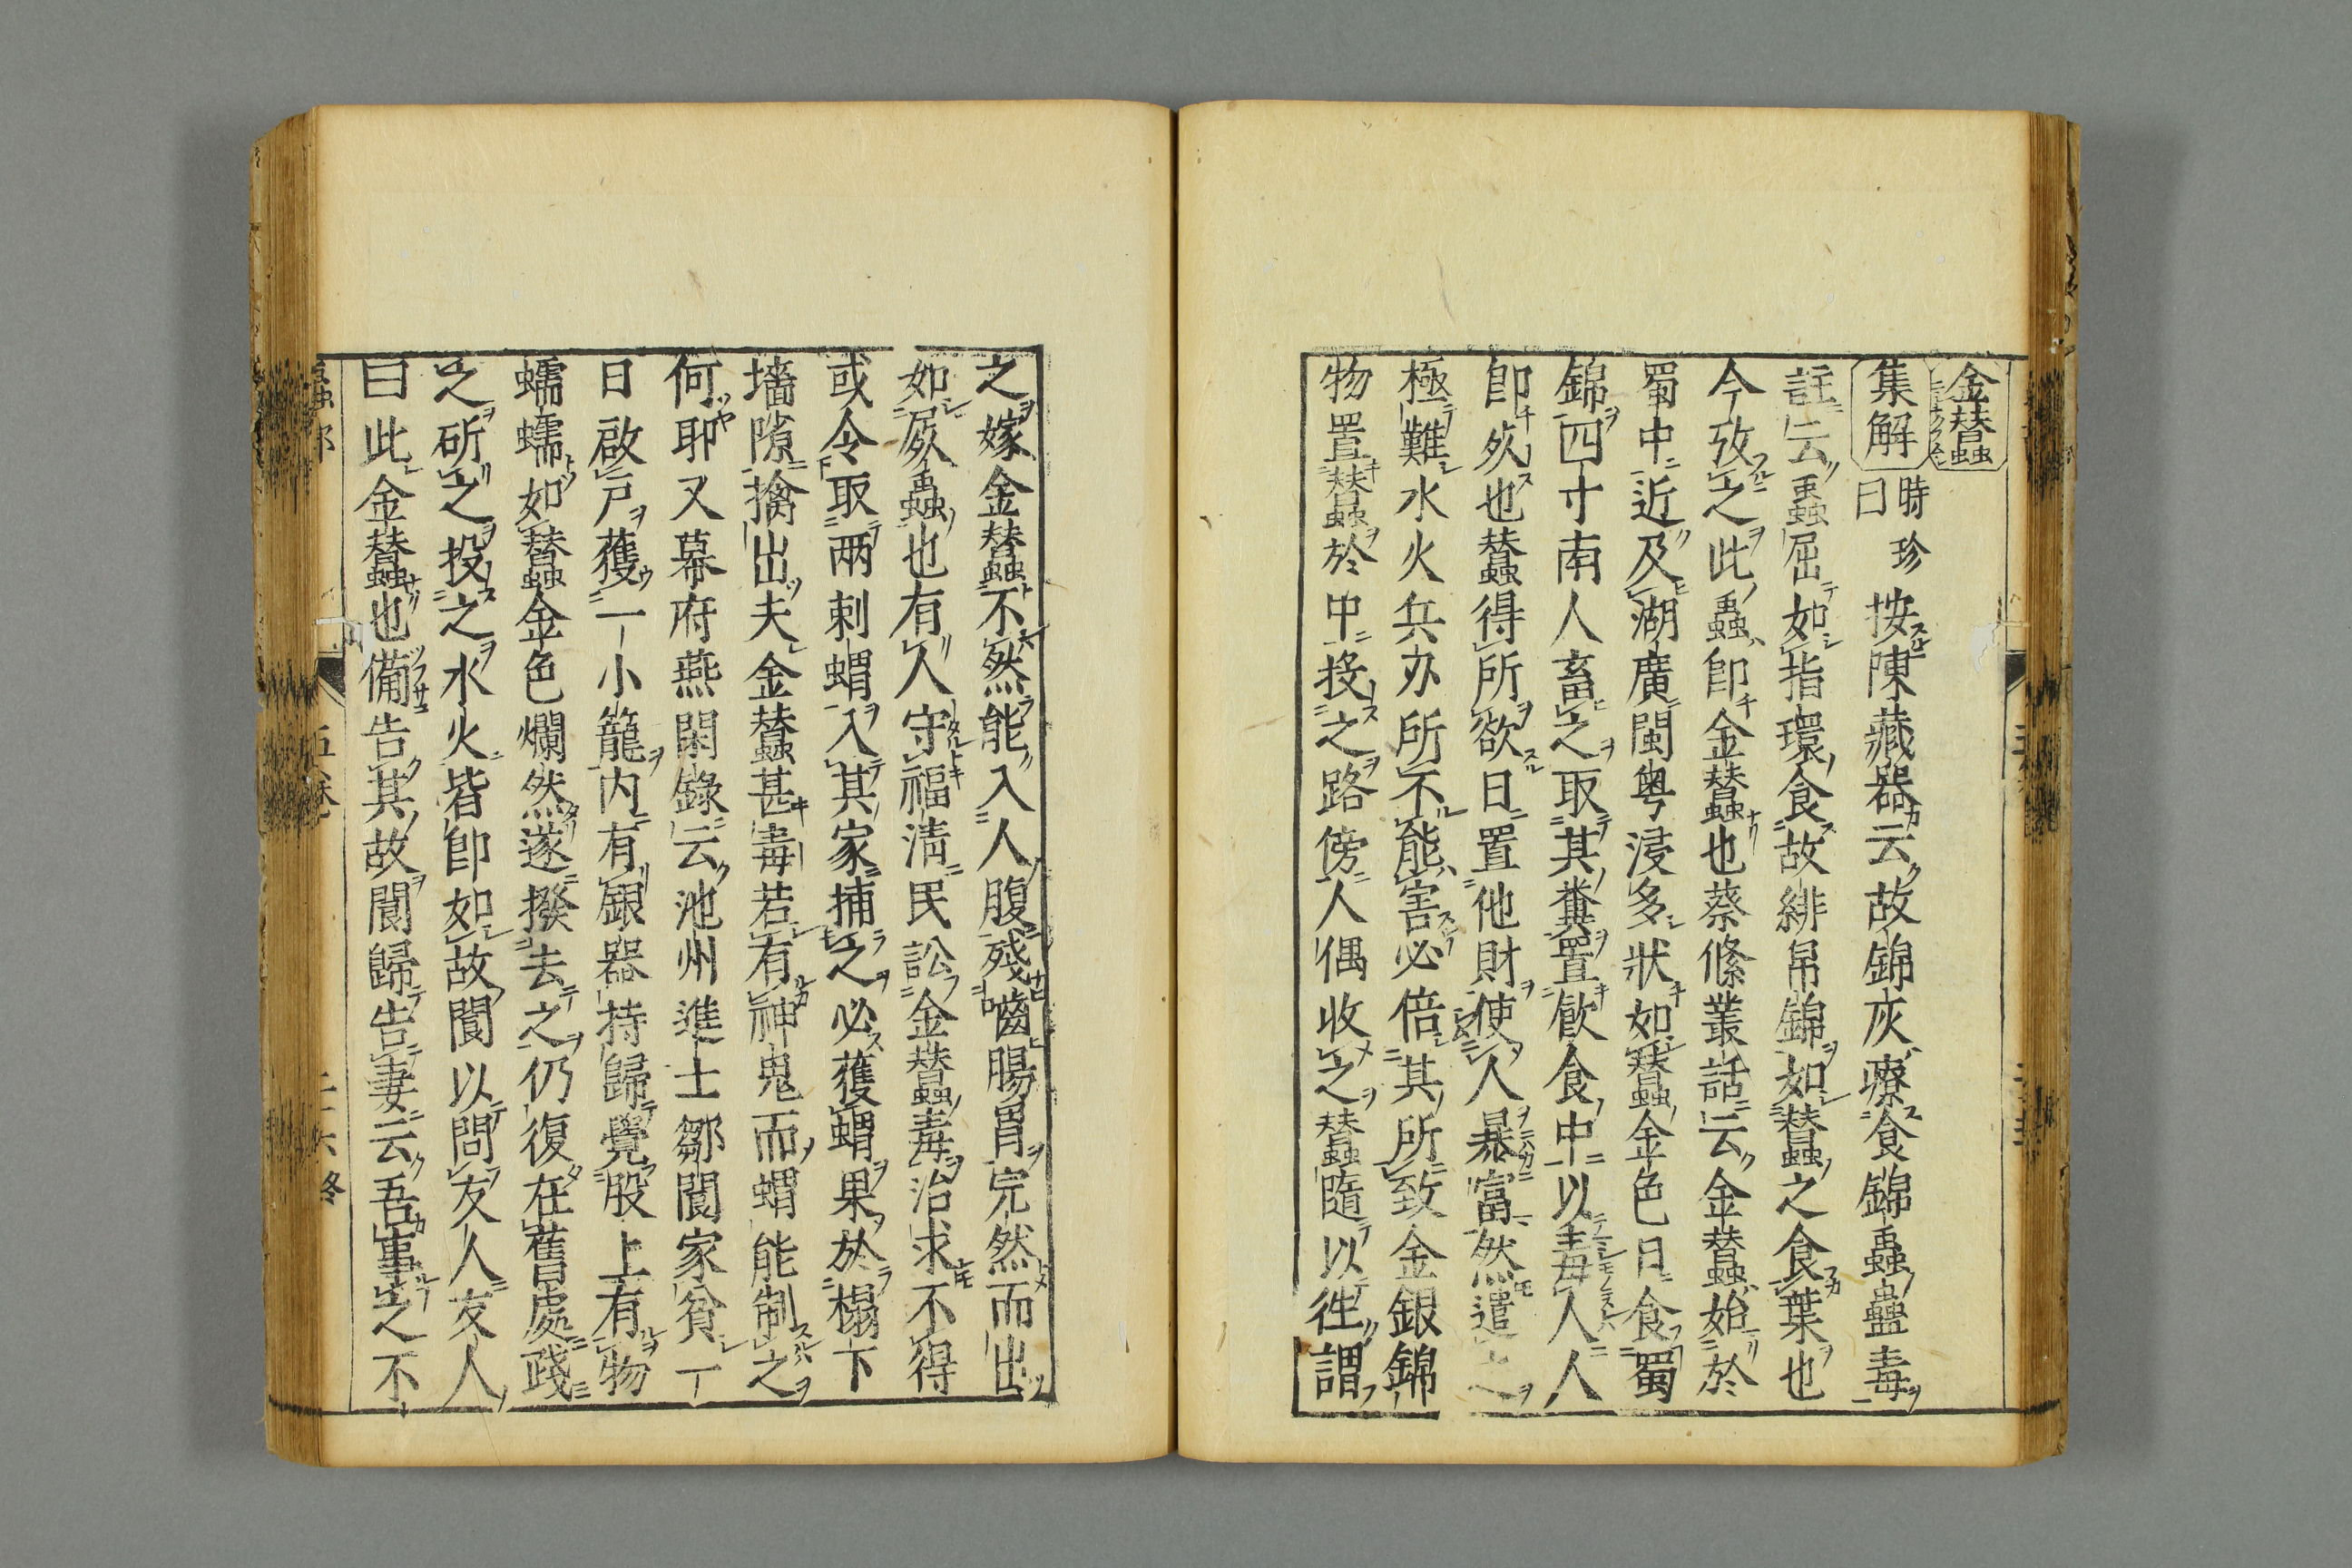 金蠶
集解 時珍曰 按陳藏器云故錦灰療食錦蟲蠱毒
註云蟲屈如指環食故緋帛錦如蠶之食葉也
今攷之此蟲即金蠶也蔡絛叢話云金蠶始於
蜀中近及湖廣閩粵浸多狀如蠶金色日食蜀
錦四寸南人畜之取其糞置飲食中以毒人人
卽死也蠶得所欲日置他財使人暴富然遣之
極難水火兵刃所不能害必倍其所致金銀錦
物置蠶於中投之路傍人偶收之蠶隨以往謂
之嫁金蠶不然能入人腹殘齧腸胃完然而出
如屍蟲也有人守福清民訟金蠶毒治求不得
或令取兩刺蝟入其家捕之必獲蝟果於榻下
墻隙擒出夫金蠶甚毒若有神鬼而蝟能制之
何耶又幕府燕閑錄云池州進士鄒閬家貧一
日啟戶獲一小籠內有銀器持歸覺股上有物
蠕蠕如蠶金色爛然遂撥去之仍復在舊處踐
之斫之投之水火皆卽如故閬以問友人友人
曰此金蠶也備告其故閬歸告妻云吾事之不
蟲部
五